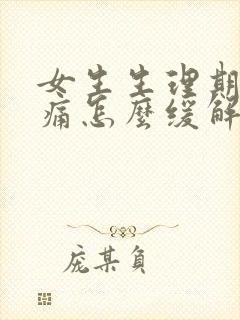 女生生理期
痛怎麼缓解
庞某负